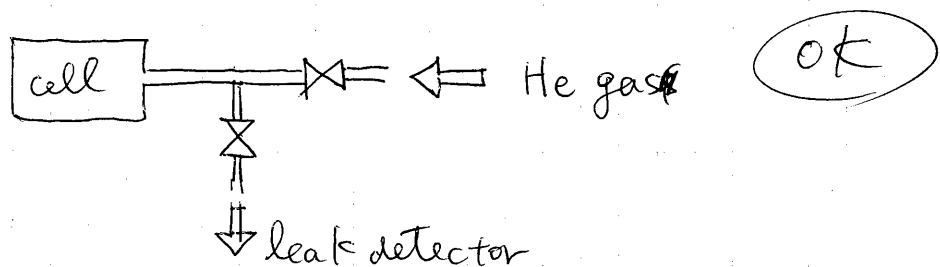 cell
He gas
OK
leak detector